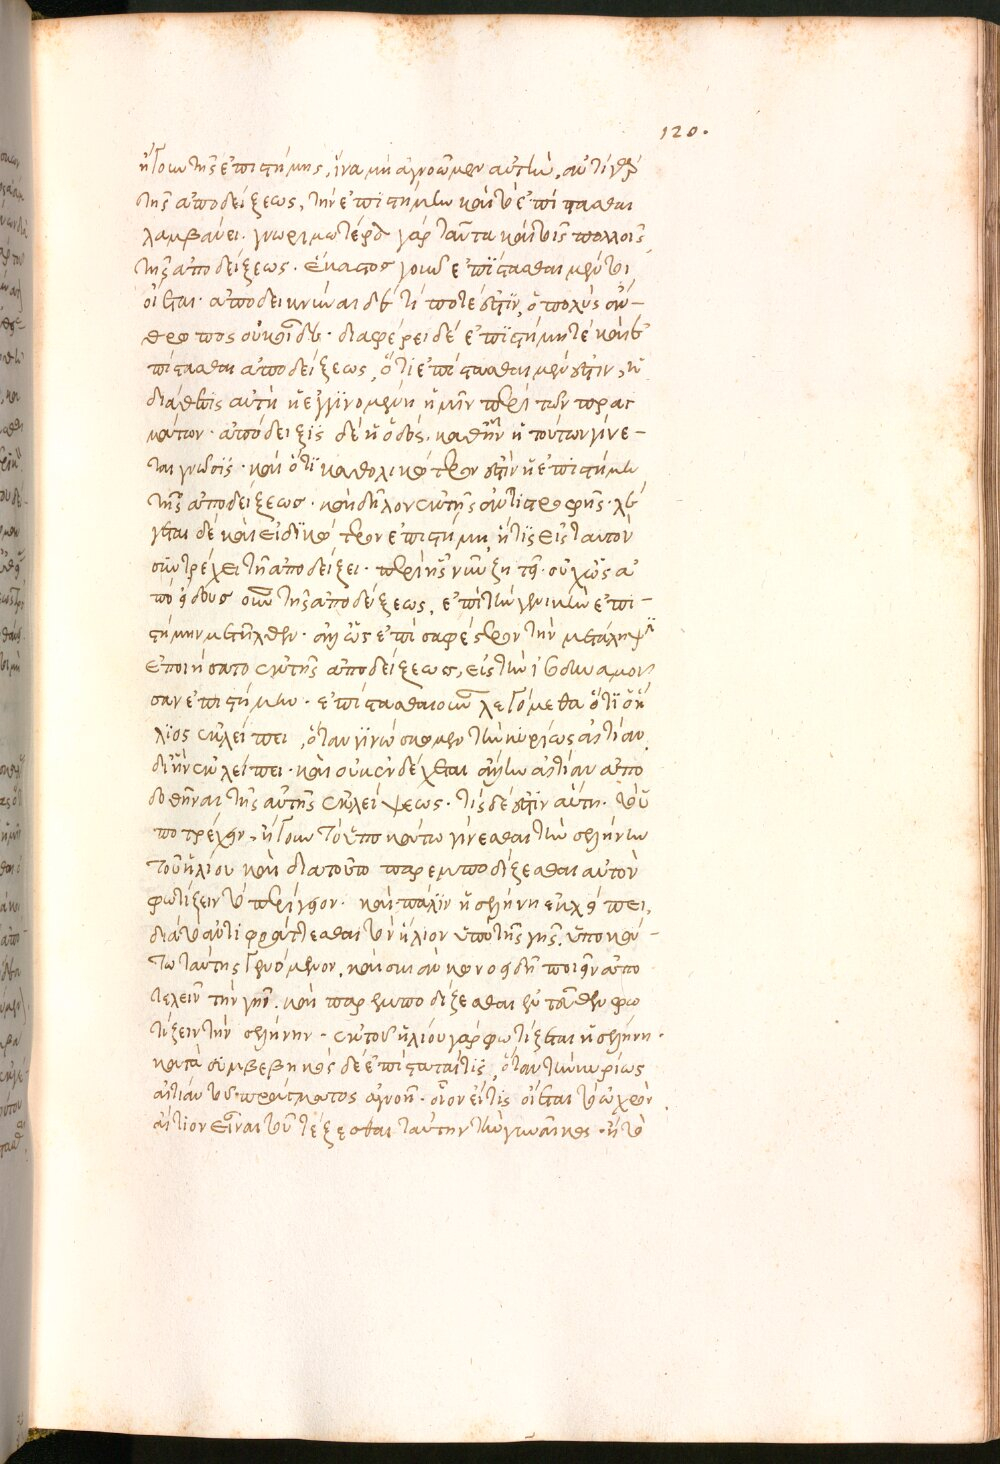 120.
ἤγουν τῆς ἐπιστήμης, ἵνα μὴ ἀγνοῶμεν αὐτὴν, ἀντὶ γὰρ
τῆς ἀποδείξεως, τὴν ἐπιστήμην καὶ τὸ ἐπίστασθαι
λαμβάνει. γνωριμώτερα γὰρ ταῦτα καὶ τοῖς πολλοῖς
τῆς ἀποδείξεως. ἕκαστος γοῦν ἐπίστασθαι μέν τι
οἴεται. ἀποδεικνύναι δὲ τί ποτέ ἐστιν, ὁ πολὺς ἄν-
θρωπος οὐκ οἶδε. διαφέρει δὲ ἐπιστήμη τὲ καὶ ἐ
πίστασθαι ἀποδείξεως, ὅτι ἐπίστασθαι μέν ἐστιν, ἡ
διάθεσις αὐτὴ ἡ ἐγγινομένη ἡμῖν περὶ τῶν πραγ
μάτων. ἀπόδειξις δὲ ἡ ὁδὸς, καθ' ἣν ἡ τούτων γίνε-
ται γνῶσις. καὶ ὅτι καθολικώτερον ἐστὶν ἡ ἐπιστήμη
τῆς ἀποδείξεως. καὶ δῆλον ἐκ τῆς ἀντιστροφῆς. λέ
γεται δὲ καὶ εἰδικώτερον ἐπιστήμη, ἥτις εἰς ταυτὸν
συντρέχει τῇ ἀποδείξει. περὶ ἧς νῦν ζητεῖ. οὐχ ὡς ἀ
ποδοὺς οὖν τῆς ἀποδείξεως, ἐπὶ τὴν γενικὴν ἐπι-
στήμην μετῆλθεν. ἀλλ' ὡς ἐπὶ σαφέστερον τὴν μετάληψιν
ἐποιήσατο ἐκ τῆς ἀποδείξεως, εἰς τὴν ἰσοδυναμοῦ
σαν ἐπιστήμην. ἐπίστασθαι οὖν λεγόμεθα ὅτι ὁ ἥ
λιος ἐκλείπει, ὅταν γινώσκωμεν τὴν κυρίως αἰτίαν
δι' ἣν ἐκλείπει. καὶ οὐκ ἐνδέχεται ἄλλην αἰτίαν ἀπο
δοθῆναι τῆς αὐτῆς ἐκλείψεως. τίς δέ ἐστιν αὕτη. τὸ ὑ
ποτρέχειν, ἤγουν τὸ ὑποκάτω γίνεσθαι τὴν σελήνην
τοῦ ἡλίου καὶ διὰ τοῦτο παρεμποδίζεσθαι αὐτὸν
φωτίζειν τὸ περίγειον. καὶ πάλιν ἡ σελήνη ἐκλείπει,
διὰ τὸ ἀντιφράττεσθαι τὸν ἥλιον ὑπὸ τῆς γῆς. ὑποκά-
τω ταύτης γενόμενον, καὶ σκιὰν κωνοειδῆ ποιεῖν ἀπο
τελεῖν τὴν γῆν. καὶ παρεμποδίζεσθαι ἐν τεῦθεν φω
τίζειν τὴν σελήνην. ἐκ τοῦ ἡλίου γὰρ φωτίζεται ἡ σελήνη.
κατὰ συμβεβηκὸς δὲ ἐπίσταταί τις, ὅταν τὴν κυρίως
αἰτίαν τοῦ πράγματος ἀγνοῇ. οἷον εἴ τις οἴεται τὸ ὠχρὸν
αἴτιον εἶναι τοῦ τέξεσθαι ταύτην τὴν γυναῖκα. ἢ τὸ